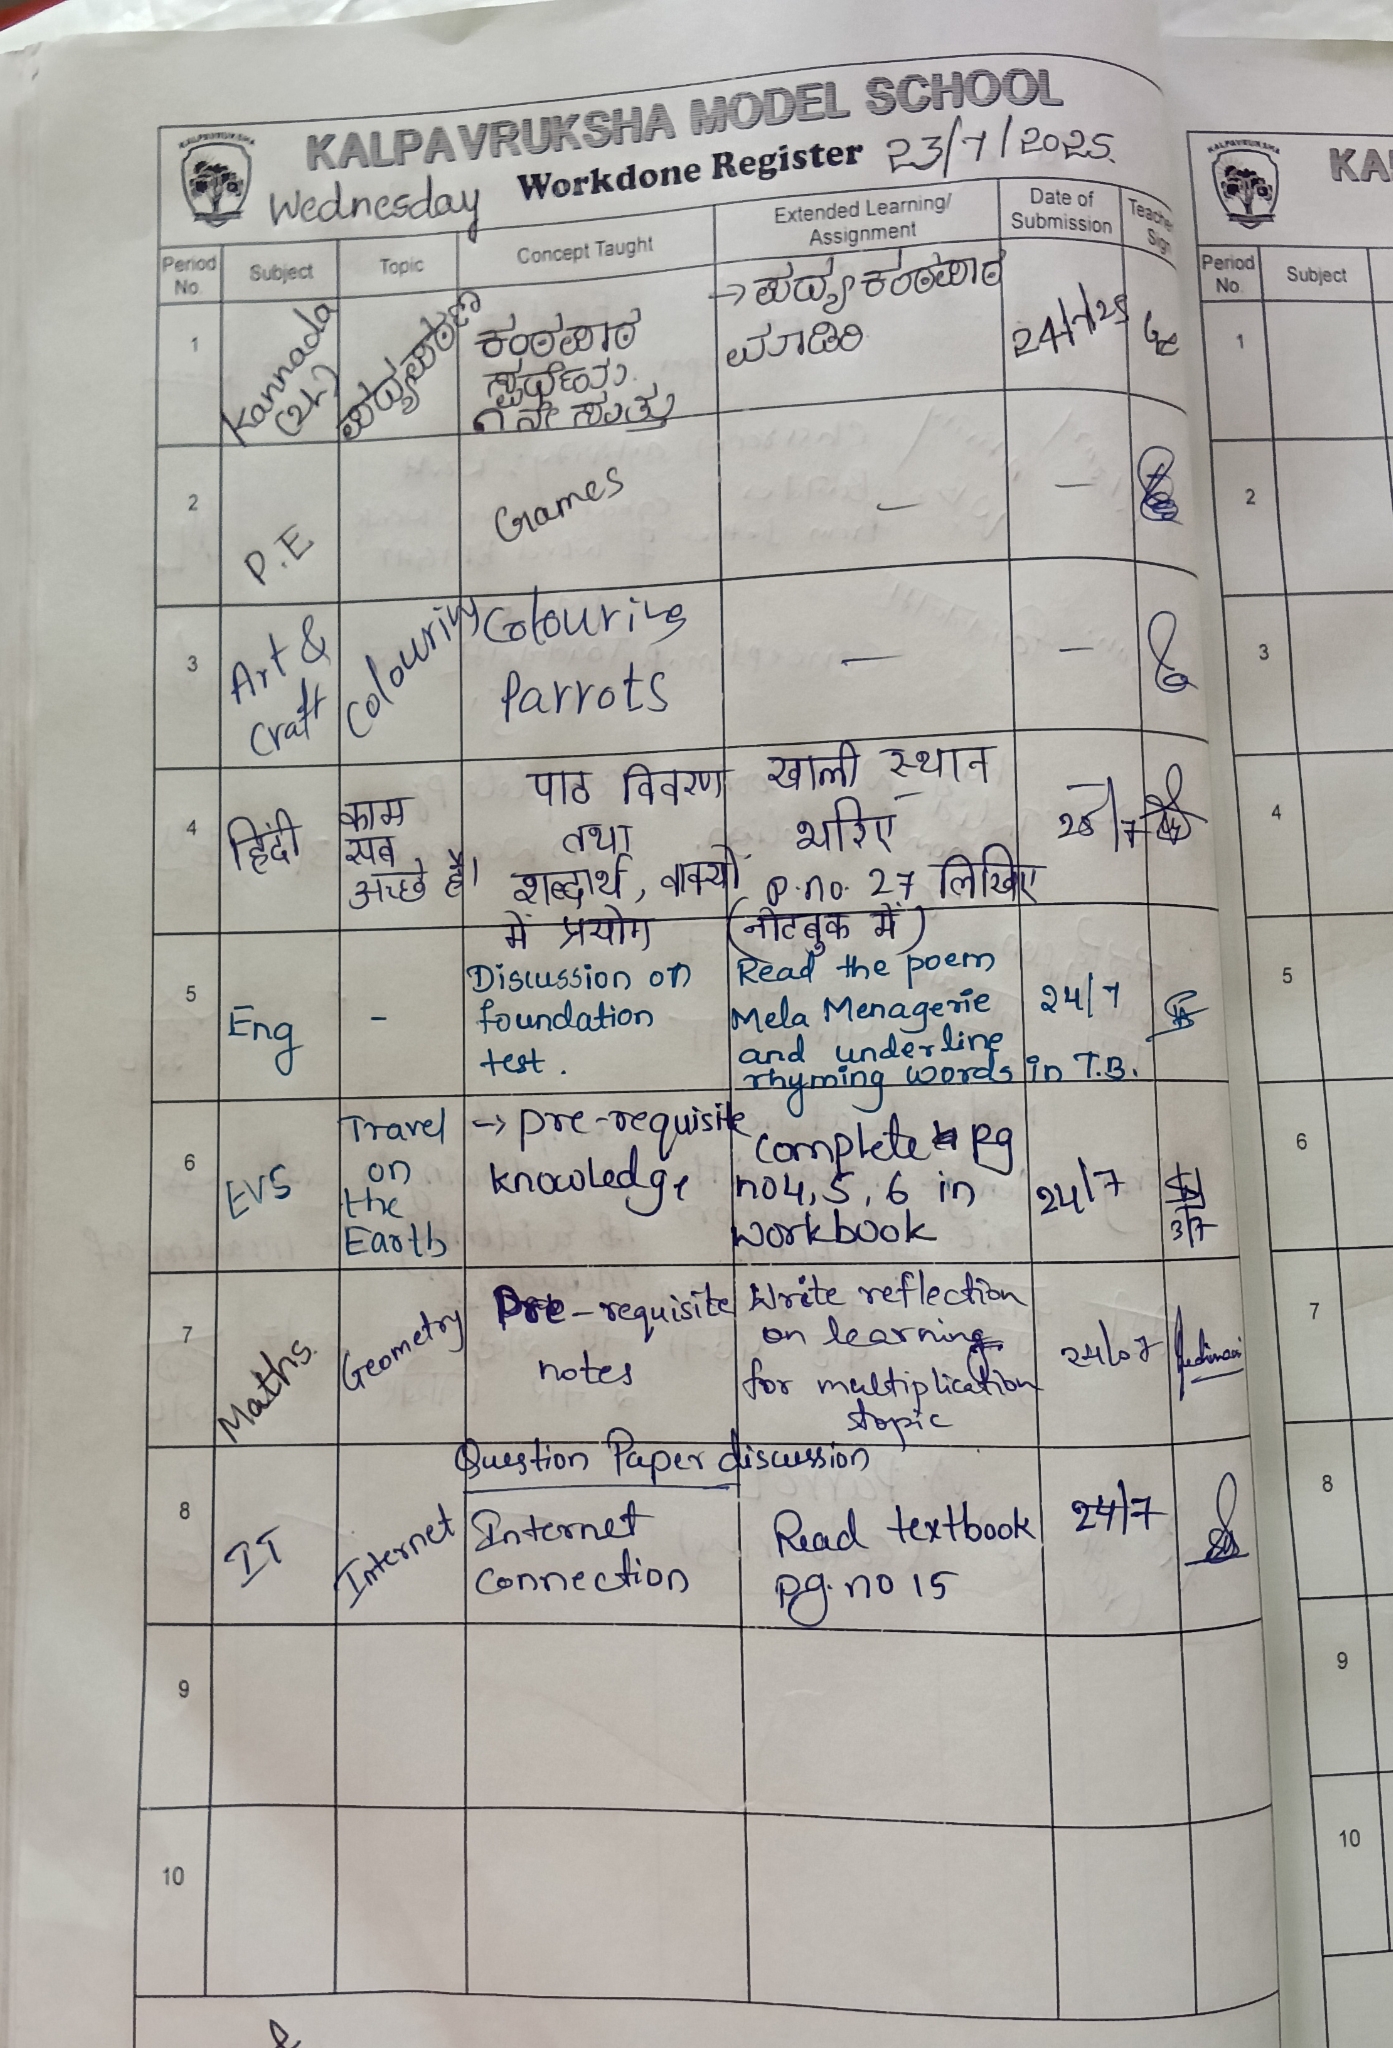 KALPAVRUKSHA MODEL SCHOOL
Wednesday Workdone Register 23/7/2025.
Period No. Subject Topic Concept Taught Extended Learning/ Assignment Date of Submission Teacher Sign
1 Kannada (2L) ಪದ್ಯಪಠಣ ಕಂಠಪಾಠ → ಪದ್ಯ ಕಂಠಪಾಠ 24/7/25
ಸ್ಪರ್ಧೆಯ ಮಾಡಿರಿ
೧ನೇ ಸುತ್ತು
2 P.E Games — —
3 Art & Craft Colouring Colouring Parrots — —
4 हिंदी काम सब अच्छे है। पाठ विवरण खाली स्थान
तथा भरिए
शब्दार्थ, वाक्यों p.no. 27 लिखिए
में प्रयोग (नोटबुक में)
5 Eng - Discussion on Read the poem 24/7
foundation Mela Menagerie
test. and underline
rhyming words in T.B.
6 EVS Travel on the Earth → pre-requisite complete pg 24/7
knowledge no 4, 5, 6 in
workbook
3/7
7 Maths. Geometry Pre-requisite Write reflection 24/07
notes on learning
for multiplication
topic
Question Paper discussion
8 IT Internet Internet Read textbook 24/7
connection pg. no 15
9
10
KALPAVRUKSHA
KA
Period No. Subject
1
2
3
4
5
6
7
8
9
10